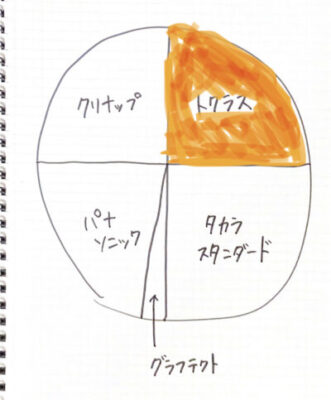 クリナップ
トクラス
パナ
ソニック
タカラ
スタンダード
グラフテクト